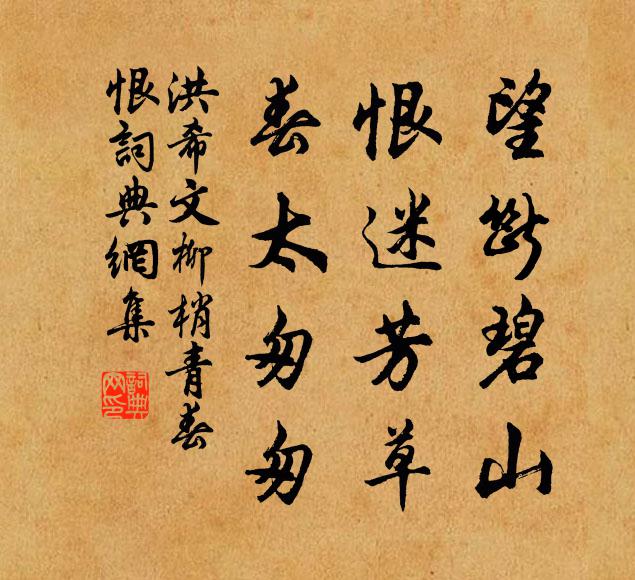 望断碧山
恨迷芳草
春太匆匆
洪希文柳梢青春
恨詞典網集
詞典
网印